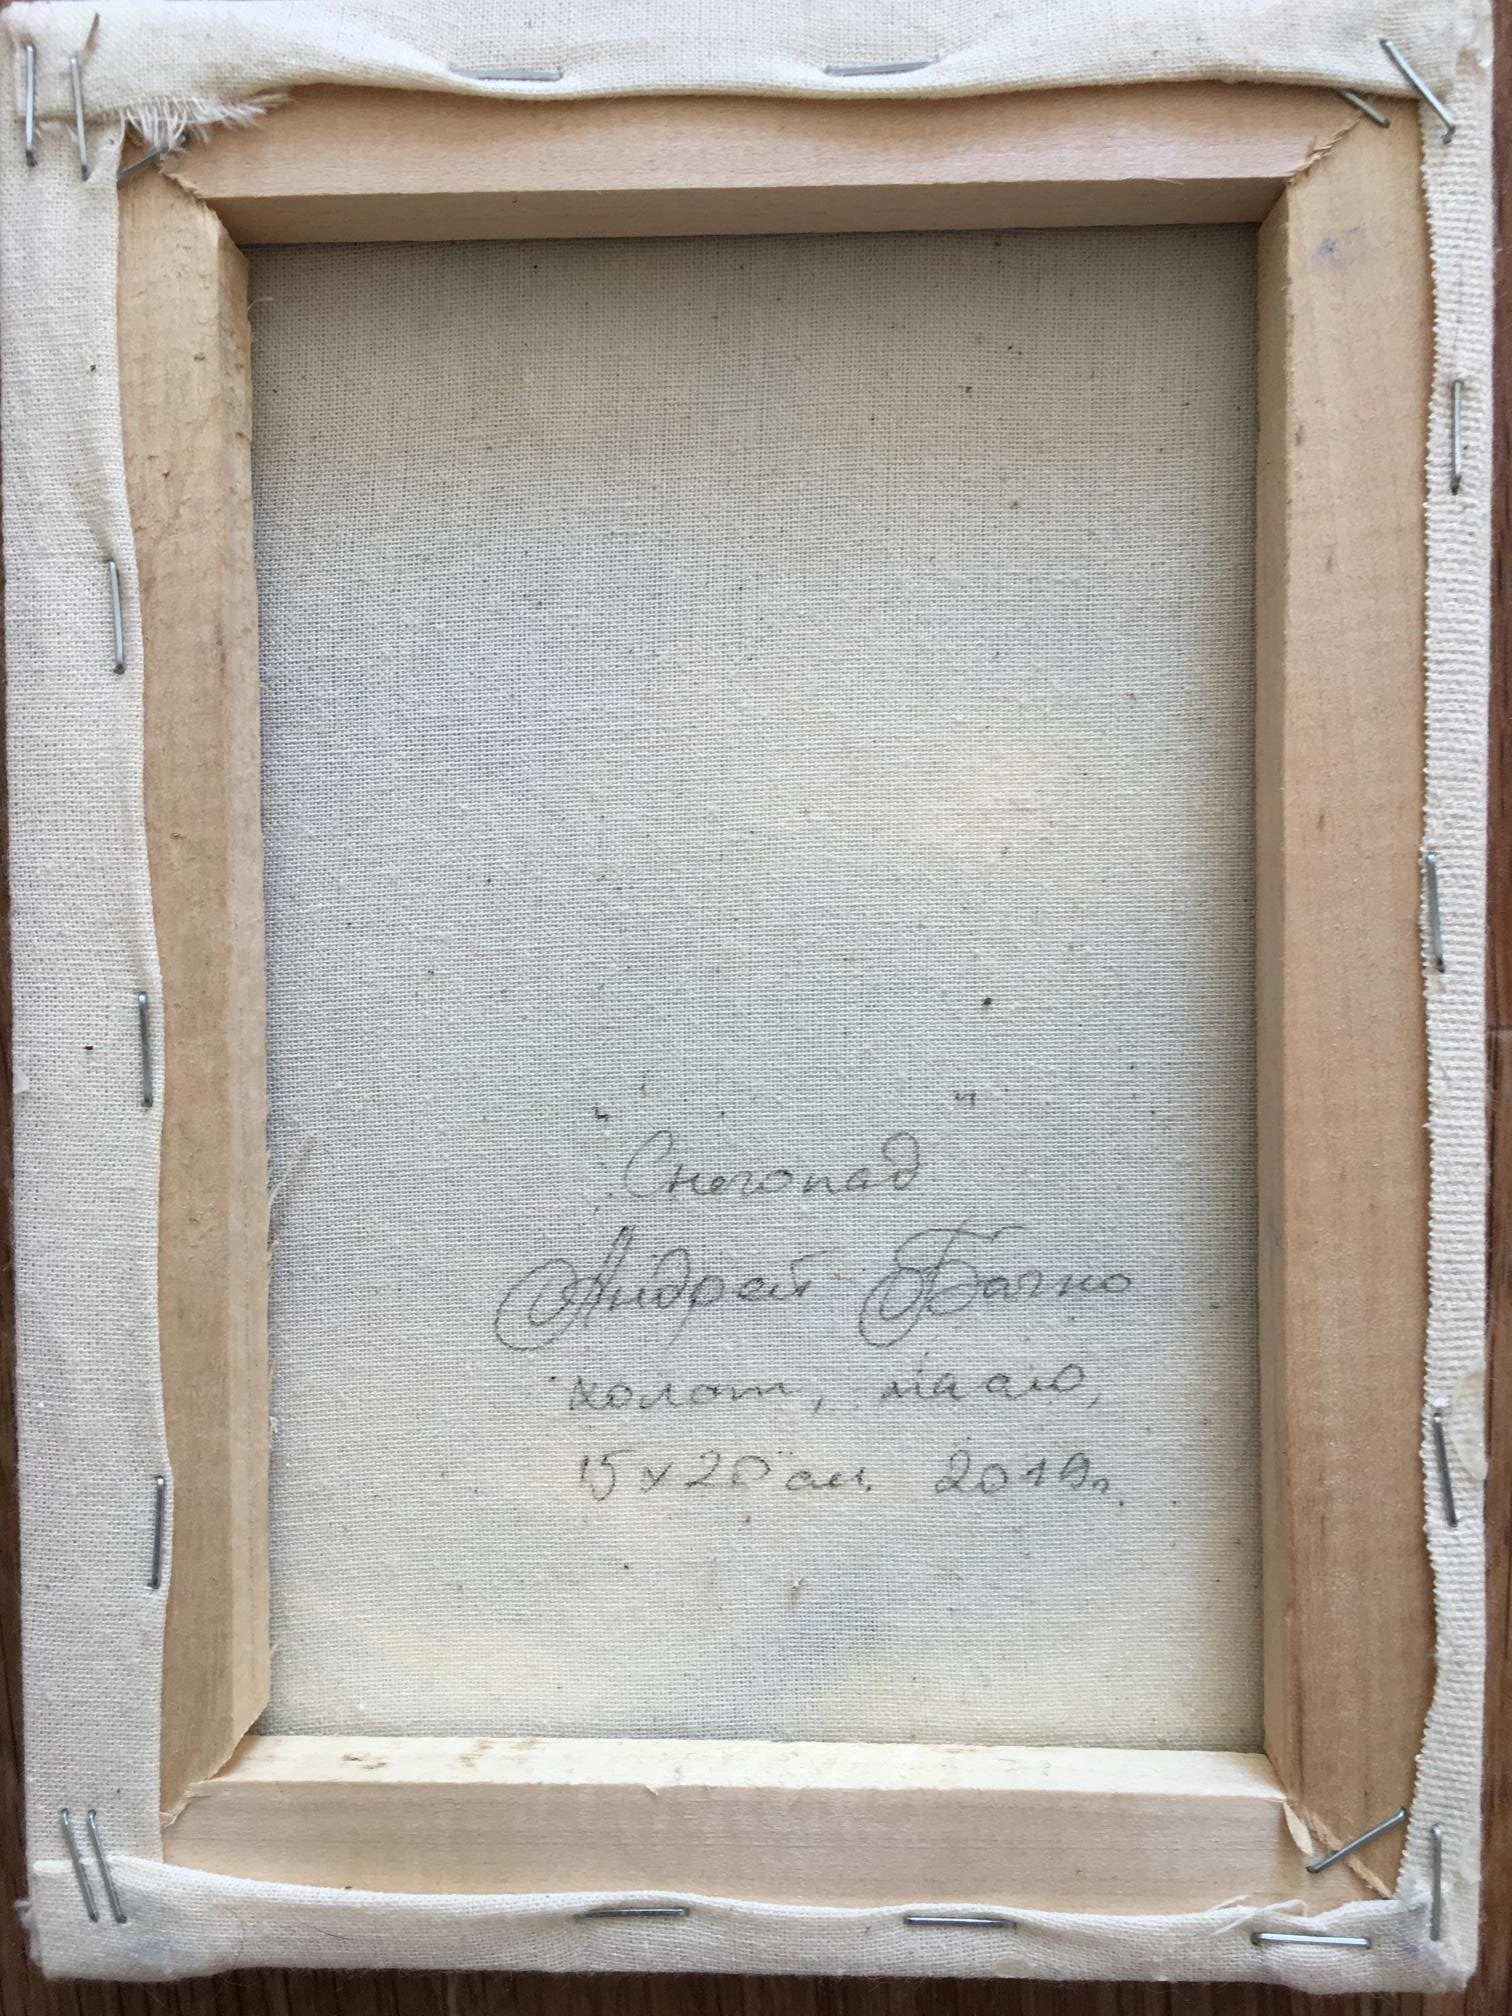 "Снегопад"
Андрей Бачно
холст, масло,
15х20 см. 2019г.